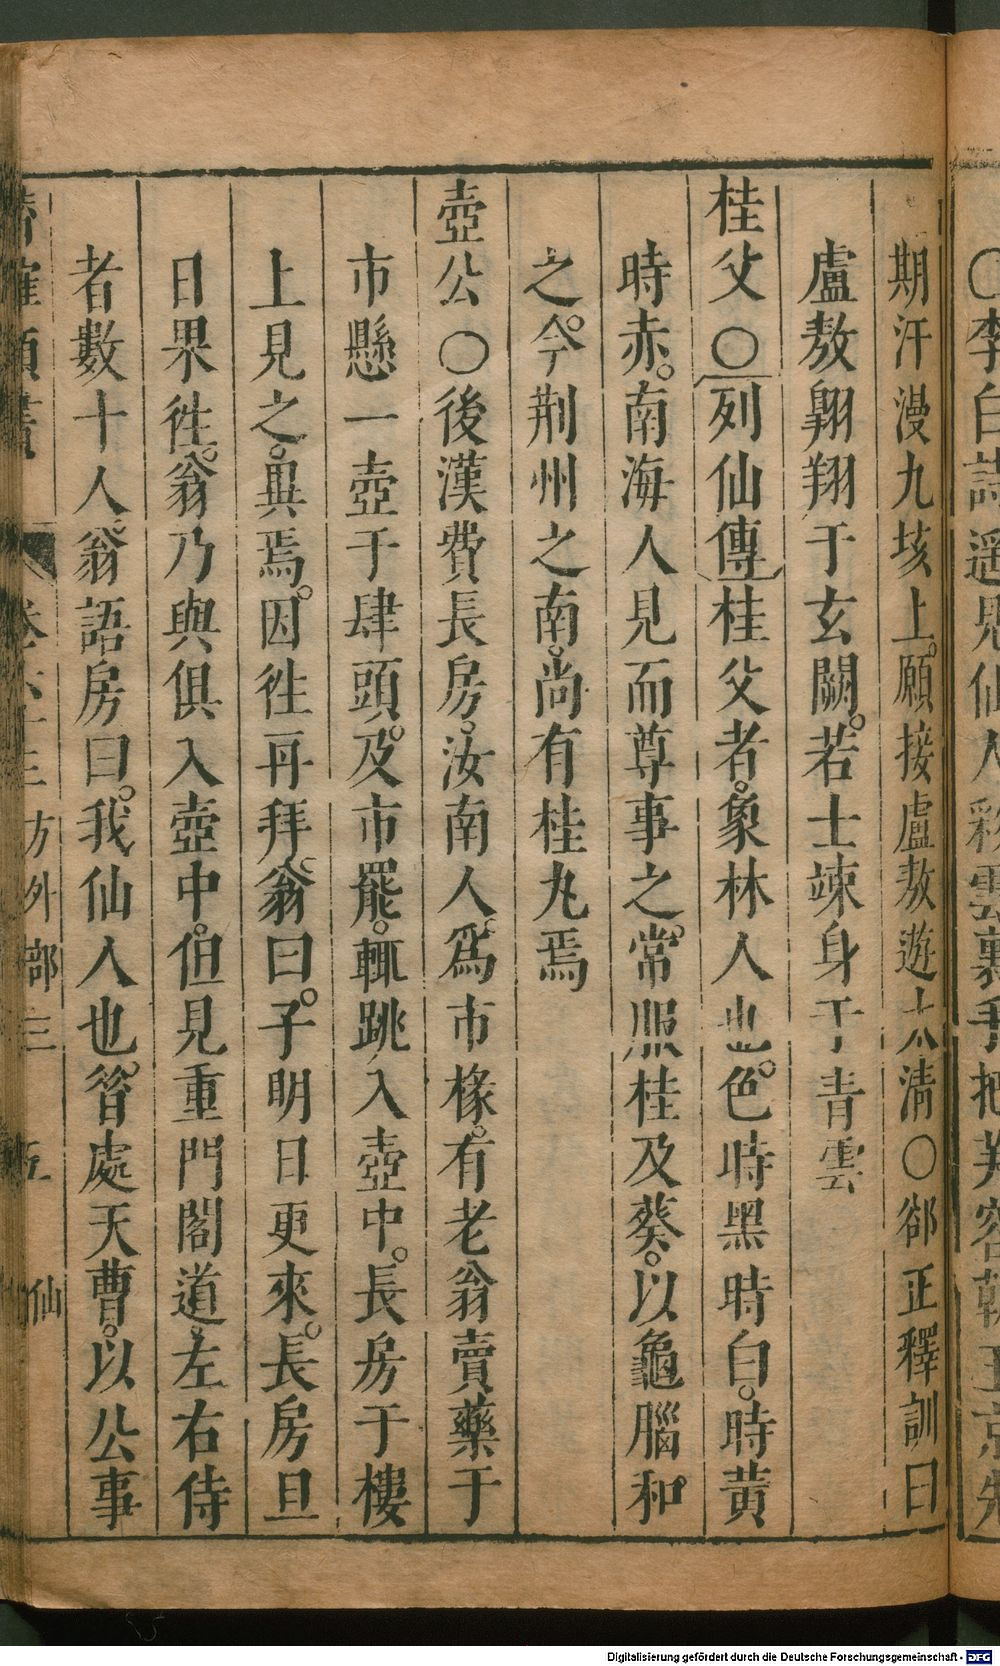 〇李白詩遥見仙人綵雲裏手把芙蓉朝玉京先
期汗漫九垓上。願接盧敖遊太清〇郤正釋訓曰
盧敖翺翔于玄闕。若士竦身于青雲
桂父〇列仙傳桂父者。象林人也。色時黑時白。時黃
時赤。南海人見而尊事之。常服桂及葵。以龜腦和
之。今荆州之南。尚有桂丸焉
壺公〇後漢費長房。汝南人。爲市椽。有老翁賣藥于
市懸一壺于肆頭。及市罷。輒跳入壺中。長房于樓
上見之。異焉。因徃再拜。翁曰。子明日更來。長房旦
日果徃。翁乃與俱入壺中。但見重門閣道。左右侍
者數十人。翁語房曰。我仙人也。昝處天曹。以公事
卷 方外部三 五 仙
Digitalisierung gefördert durch die Deutsche Forschungsgemeinschaft - DFG